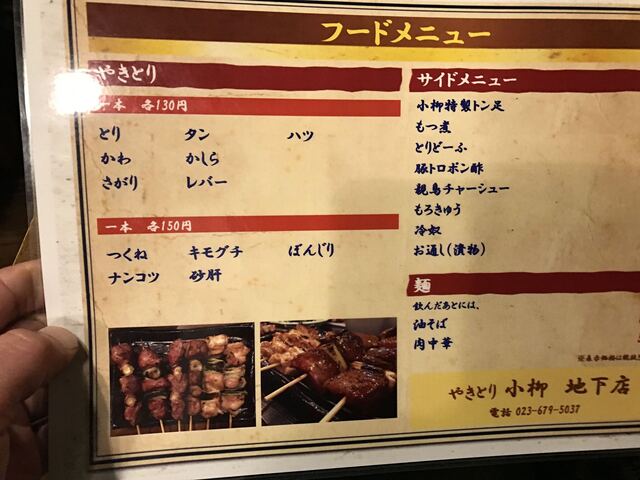 フードメニュー
やきとり
一本 各130円
とり タン ハツ
かわ かしら
さがり レバー
一本 各150円
つくね キモグチ ぼんじり
ナンコツ 砂肝
サイドメニュー
小柳特製トン足
もつ煮
とりどーふ
豚トロポン酢
親鳥チャーシュー
もろきゅう
冷奴
お通し(漬物)
麺
飲んだあとには、
油そば
肉中華
やきとり 小柳 地下店
電話 023-679-5037